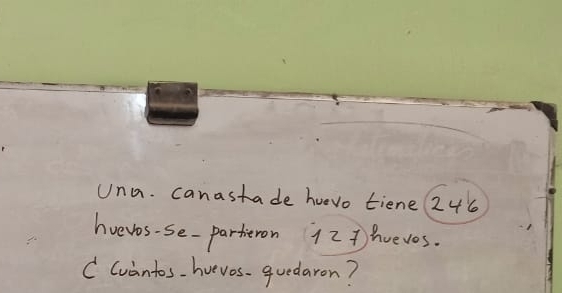 Una. canasta de huevo tiene 246
huevos-se-partieron 127 huevos.
¿Cuántos-huevos-quedaron?